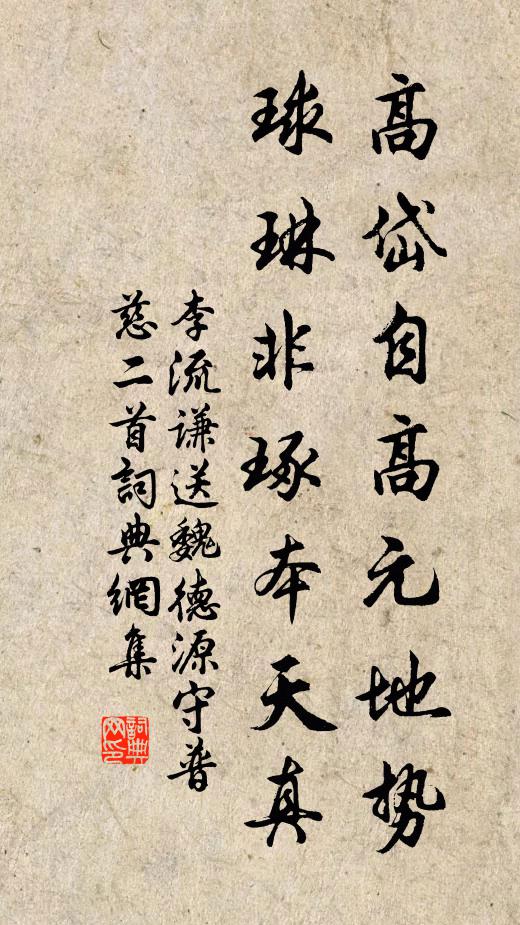 高岱自高元地势
球琳非琢本天真
李流谦送魏德源守普
慈二首詞典網集
詞典網印